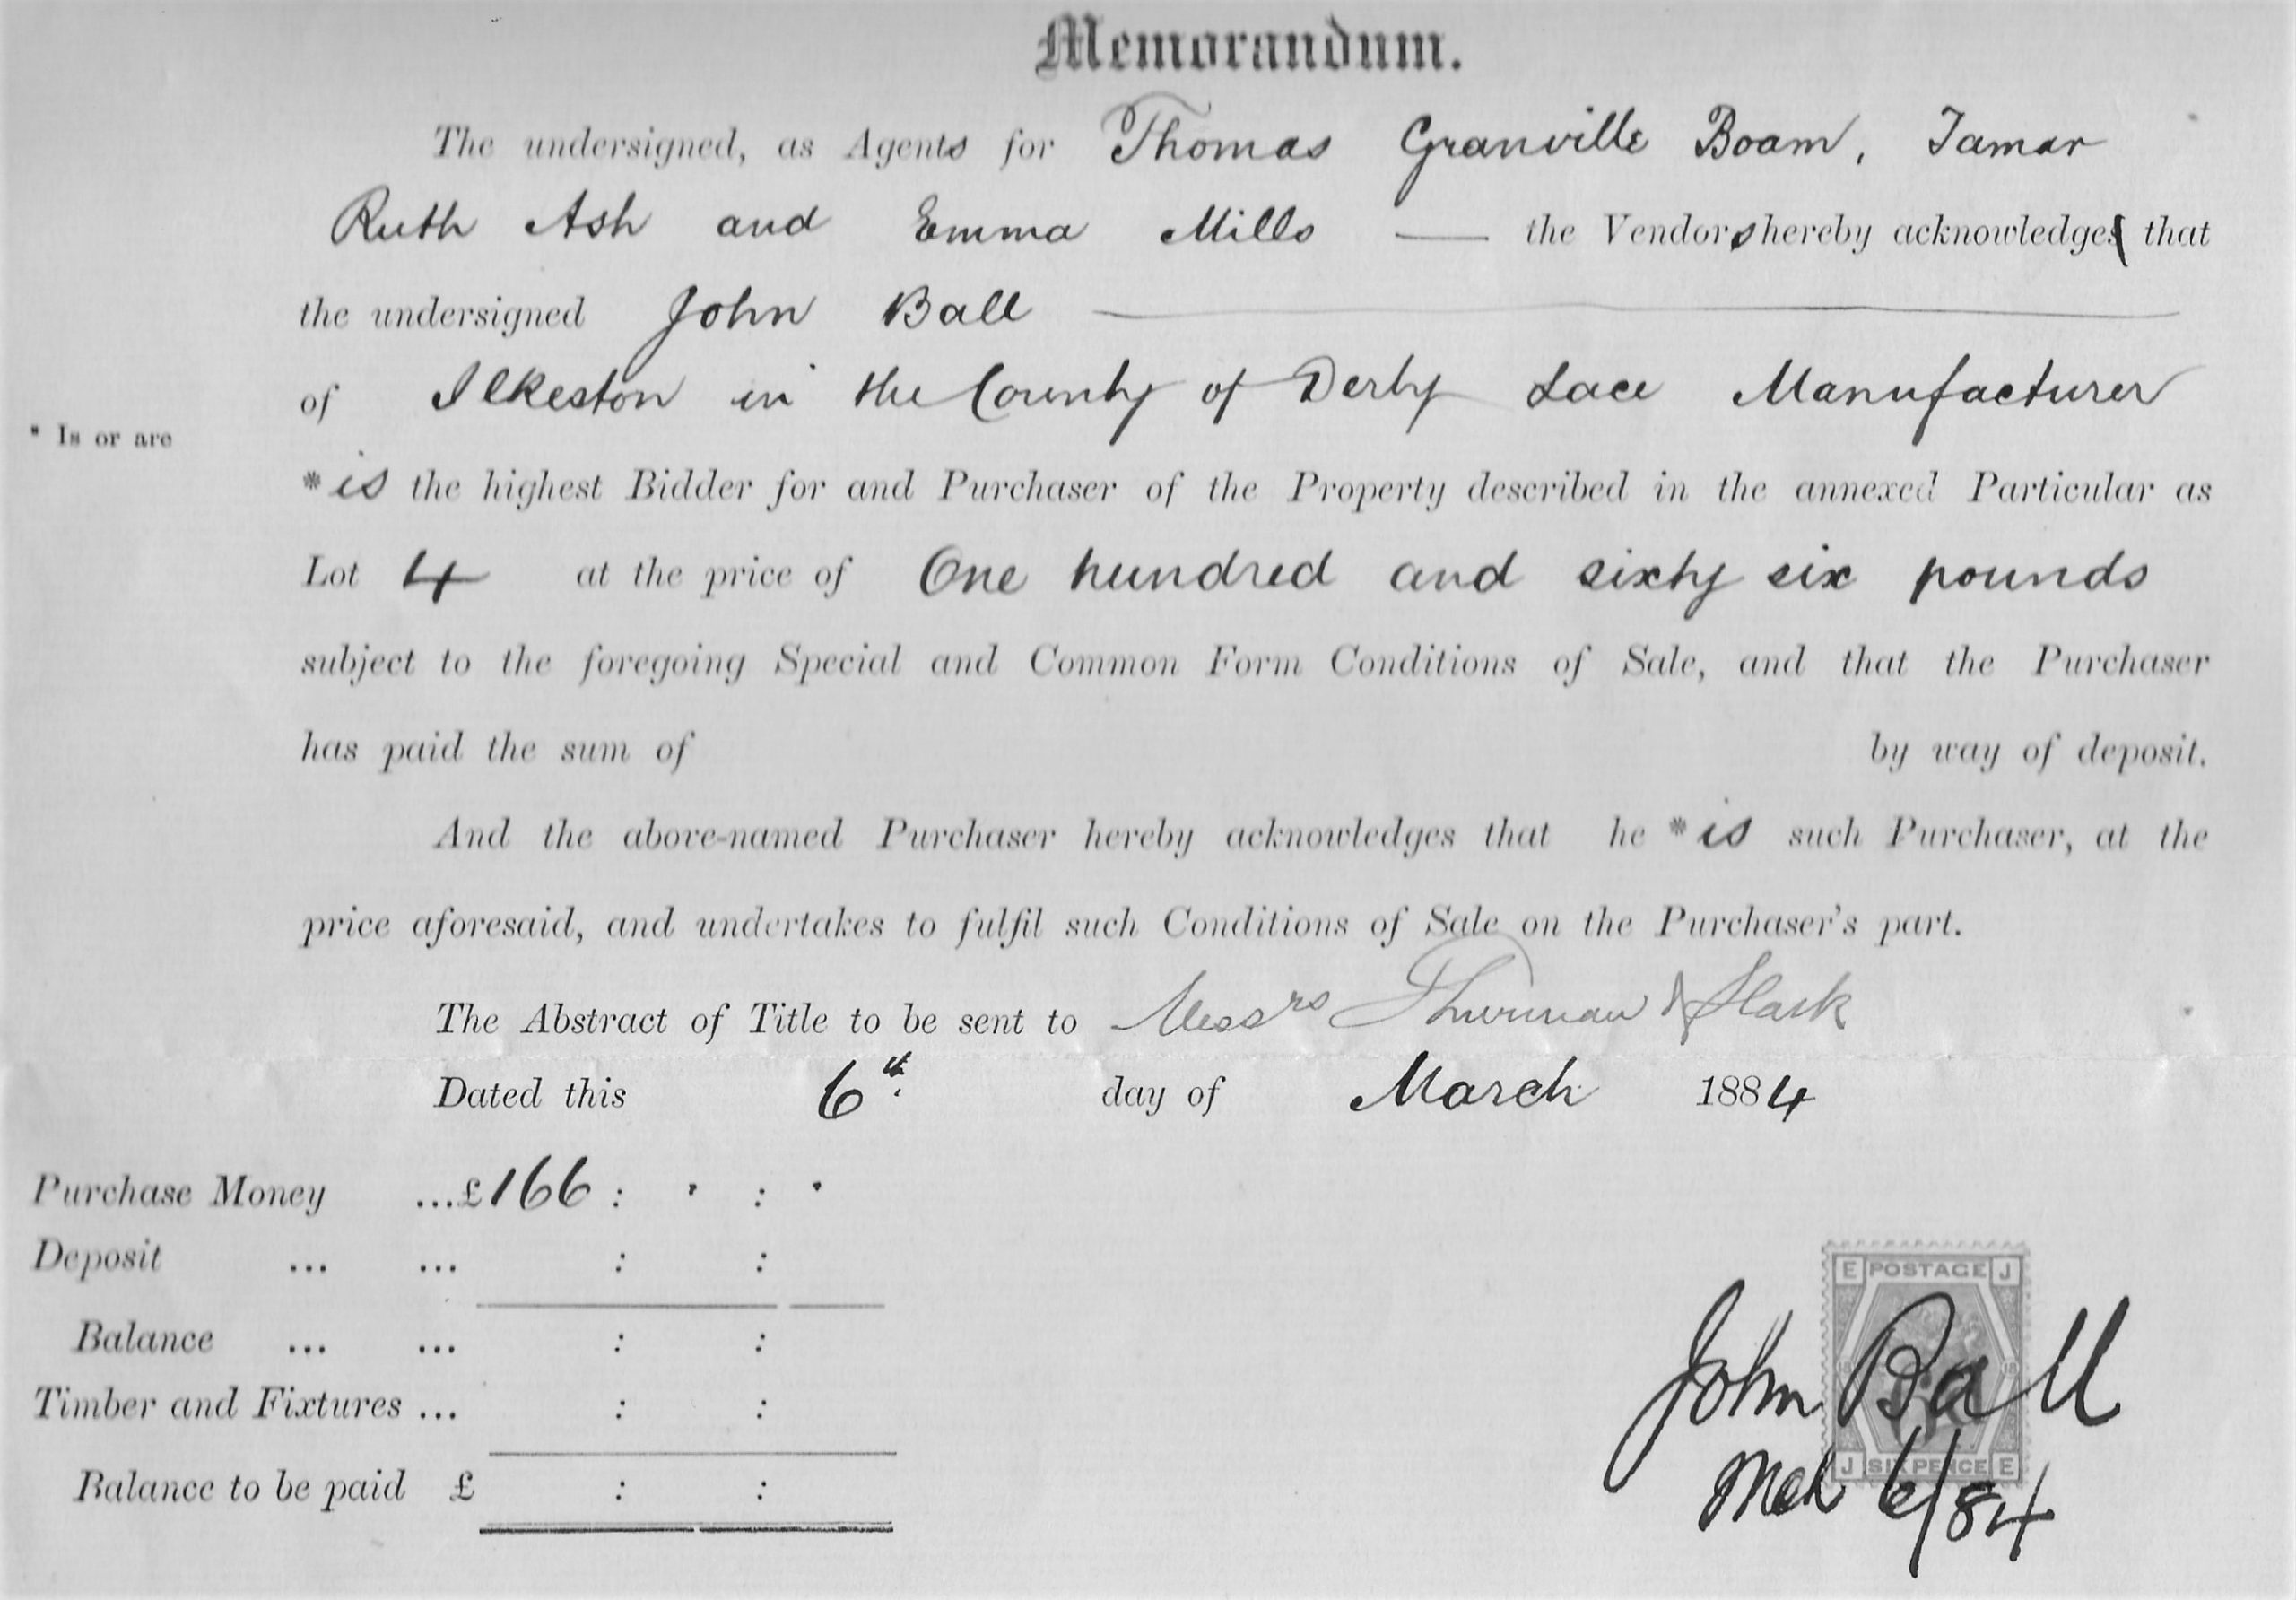 Memorandum.
The undersigned, as Agents for Thomas Granville Boam, Tamar
Ruth Ash and Emma Mills — the Vendors hereby acknowledge that
the undersigned John Ball
of Ilkeston in the County of Derby Lace Manufacturer
* Is or are
* is the highest Bidder for and Purchaser of the Property described in the annexed Particular as
Lot 4 at the price of One hundred and sixty six pounds
subject to the foregoing Special and Common Form Conditions of Sale, and that the Purchaser
has paid the sum of by way of deposit.
And the above-named Purchaser hereby acknowledges that he * is such Purchaser, at the
price aforesaid, and undertakes to fulfil such Conditions of Sale on the Purchaser's part.
The Abstract of Title to be sent to Messrs Thurman & Slack
Dated this 6th day of March 1884
Purchase Money ...£166 : · : ·
Deposit ... ... : :
Balance ... ... : :
Timber and Fixtures ... : :
Balance to be paid £ : :
E POSTAGE J
John Ball
J SIX PENCE E
Mch 6/84